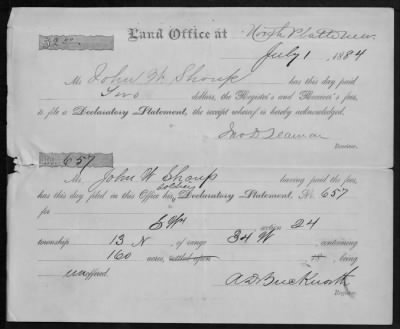 $2.00. Land Office at North Platte Neb.
July 1, 1884
Mr. John W. Shoup has this day paid
Two dollars, the Register's and Receiver's fees,
to file a Declaratory Statement, the receipt whereof is hereby acknowledged.
Jno D Seaman
Receiver.
No. 657
Mr. John W Shoup having paid the fees,
Soldiers
has this day filed in this Office his Declaratory Statement, No. 657
for E½ section 24
township 13 N, of range 34 W, containing
160 acres, settled upon 18 , being
unoffered.
A. D. Buckworth
Register.